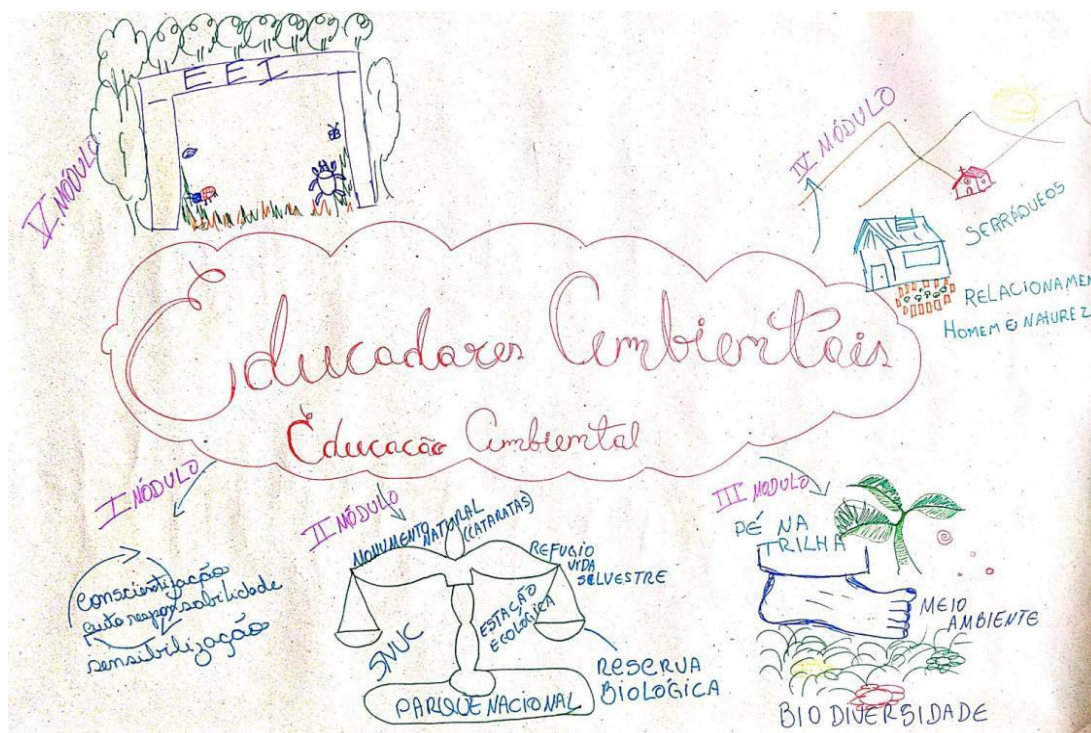 EEI
V MÓDULO
IV MÓDULO
SERRÁQUEOS
RELACIONAMEN
HOMEM E NATUREZ
Educadores Ambientais
Educação Ambiental
I MÓDULO
Conscientização
auto responsabilidade
sensibilização
II MÓDULO
MONUMENTO
NATURAL
(CATARATAS)
REFUGIO
VIDA
SILVESTRE
ESTAÇÃO
ECOLÓGICA
SNUC
RESERVA
BIOLÓGICA
PARQUE NACIONAL
III MODULO
PÉ NA
TRILHA
MEIO
AMBIENTE
BIODIVERSIDADE